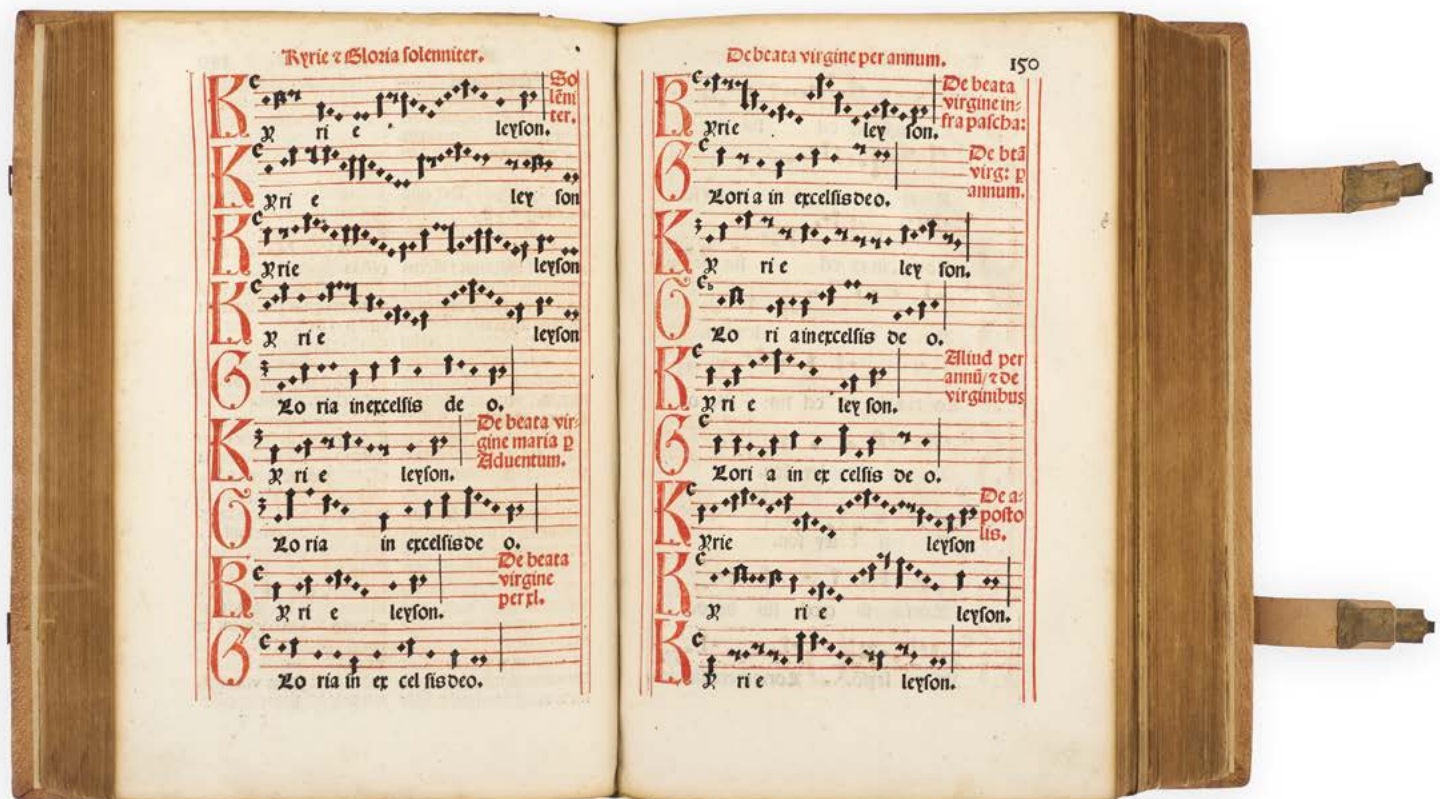 Kyrie ⁊ Gloria solenniter.
K
yri e leyson.
So
lẽni
ter.
K
yri e ley son
K
yrie leyson
K
y ri e leyson
G
Lo ria inexcelsis de o.
K
y ri e leyson.
De beata vir-
gine maria p
Aduentum.
G
Lo ria in excelsisde o.
K
y ri e leyson.
De beata
virgine
per xl.
G
Lo ria in ex cel sisdeo.
De beata virgine per annum.
150
K
yrie ley son.
De beata
virgine in-
fra pascha:
G
Lori a in excelsisdeo.
De btã
virg: p
annum.
K
y ri e ley son.
G
Lo ri ainexcelsis de o.
K
y ri e ley son.
Aliud per
annũ/ ⁊ de
virginibus
G
Lori a in ex celsis de o.
K
yrie leyson
De a-
posto
lis.
K
y ri e leyson.
K
y ri e leyson.